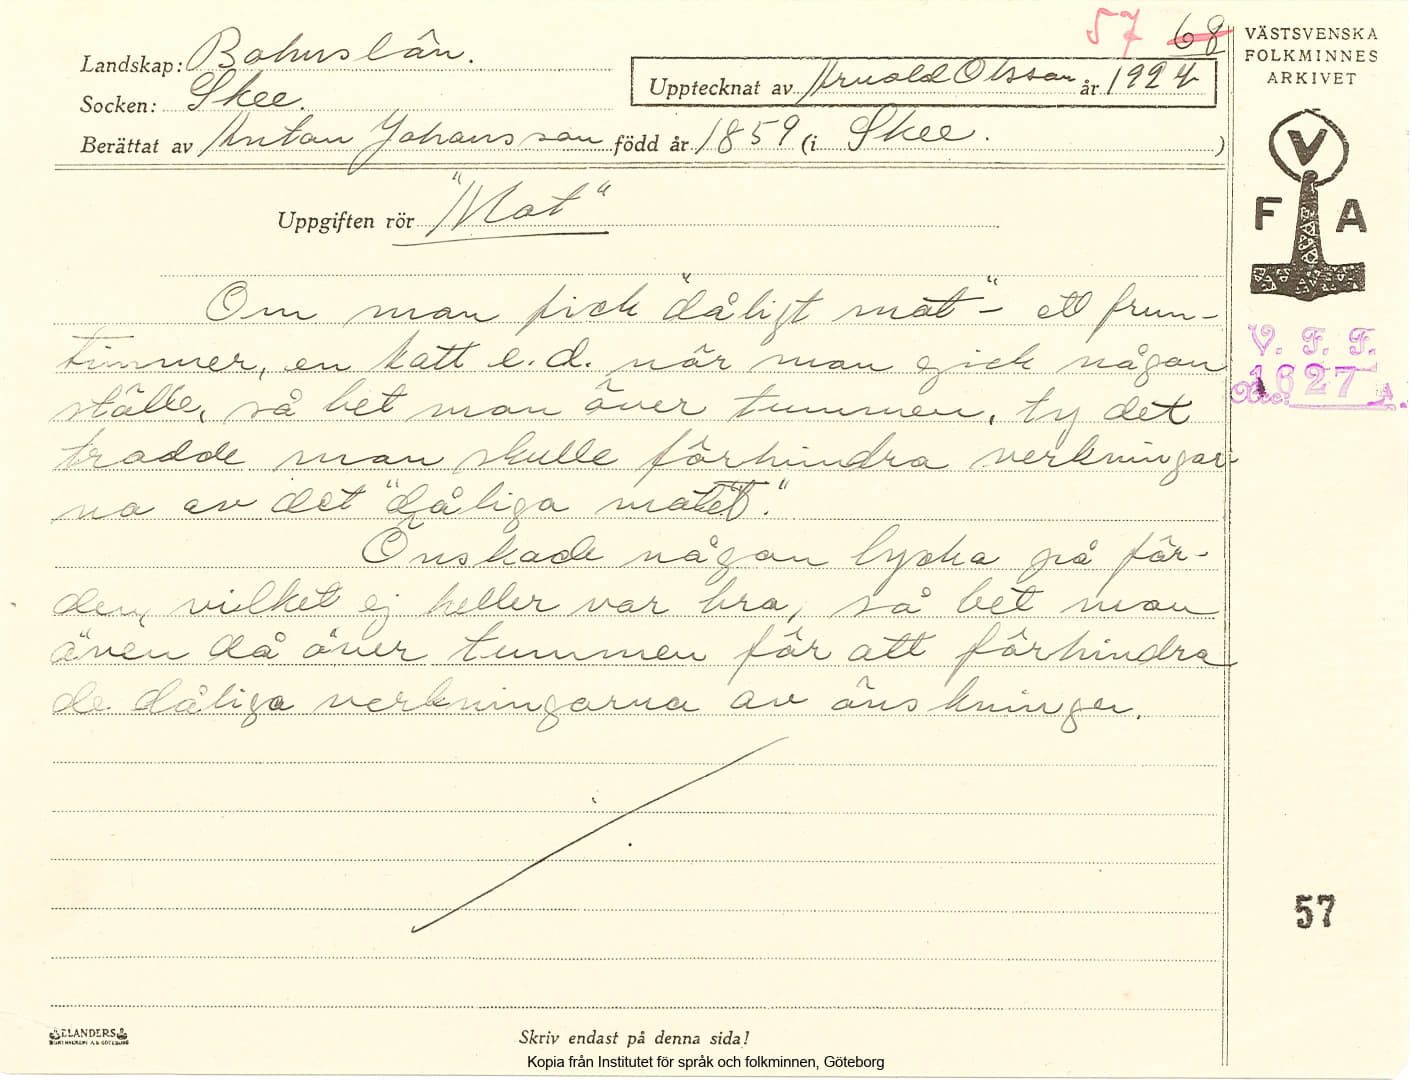 57 68
Landskap: Bohuslän.
Socken: Skee.
Upptecknat av Arnold Olsson år 1924
Berättat av Anton Johansson född år 1859 (i Skee. )
Uppgiften rör "Mot"
Om man fick "dåligt mot" - ett frun-
timmer, en katt e. d. när man gick någon
ställe, så bet man över tummen, ty det
trodde man skulle förhindra verkningar-
na av det "dåliga motet".
Önskade någon lycka på fär-
den, vilket ej heller var bra, så bet man
även då över tummen för att förhindra
de dåliga verkningarna av önskningen.
VÄSTSVENSKA
FOLKMINNES
ARKIVET
V
F A
V. F. F.
1627
Acc:
57
ELANDERS
Skriv endast på denna sida!
Kopia från Institutet för språk och folkminnen, Göteborg